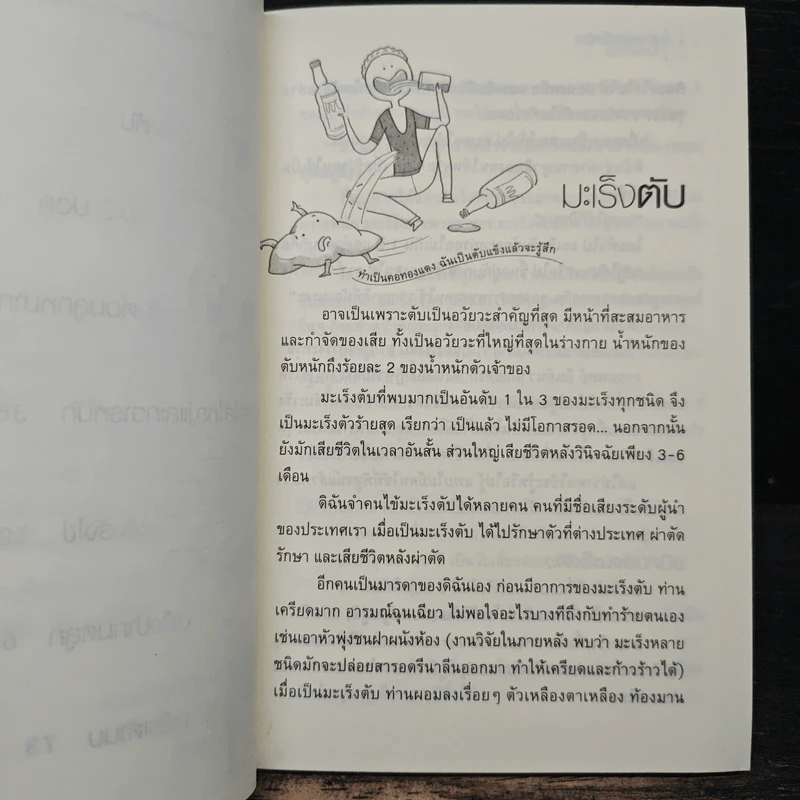 มะเร็งตับ
ทำเป็นคอทองแดง ฉันเป็นตับแข็งแล้วจะรู้สึก
อาจเป็นเพราะตับเป็นอวัยวะสำคัญที่สุด มีหน้าที่สะสมอาหาร
และกำจัดของเสีย ทั้งเป็นอวัยวะที่ใหญ่ที่สุดในร่างกาย น้ำหนักของ
ตับหนักถึงร้อยละ 2 ของน้ำหนักตัวเจ้าของ
มะเร็งตับที่พบมากเป็นอันดับ 1 ใน 3 ของมะเร็งทุกชนิด จึง
เป็นมะเร็งตัวร้ายสุด เรียกว่า เป็นแล้ว ไม่มีโอกาสรอด... นอกจากนั้น
ยังมักเสียชีวิตในเวลาอันสั้น ส่วนใหญ่เสียชีวิตหลังวินิจฉัยเพียง 3-6
เดือน
ดิฉันจำคนไข้มะเร็งตับได้หลายคน คนที่มีชื่อเสียงระดับผู้นำ
ของประเทศเรา เมื่อเป็นมะเร็งตับ ได้ไปรักษาตัวที่ต่างประเทศ ผ่าตัด
รักษา และเสียชีวิตหลังผ่าตัด
อีกคนเป็นมารดาของดิฉันเอง ก่อนมีอาการของมะเร็งตับ ท่าน
เครียดมาก อารมณ์ฉุนเฉียว ไม่พอใจอะไรบางทีถึงกับทำร้ายตนเอง
เช่นเอาหัวพุ่งชนฝาผนังห้อง (งานวิจัยในภายหลัง พบว่า มะเร็งหลาย
ชนิดมักจะปล่อยสารอดรีนาลีนออกมา ทำให้เครียดและก้าวร้าวได้)
เมื่อเป็นมะเร็งตับ ท่านผอมลงเรื่อยๆ ตัวเหลืองตาเหลือง ท้องมาน